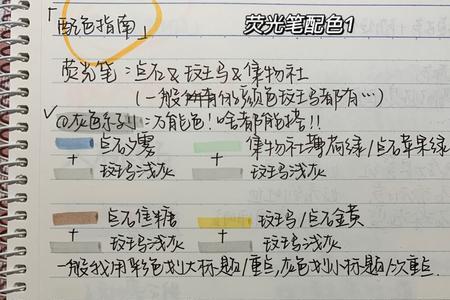 「配色指南」
荧光笔配色1
荧光笔:点石&斑马&集物社
(一般所有的颜色斑马都有…)
√@灰色系列:万能色!啥都能搭!!
点石夕雾 集物社薄荷绿/点石苹果绿
+ +
斑马浅灰 斑马浅灰
点石焦糖 斑马/点石金黄
+ +
斑马浅灰 斑马浅灰
一般我用彩色划大标题/重点,灰色划小标题/次重点.